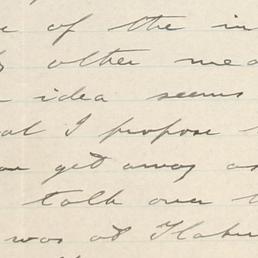 of the in
other mea
idea seems
I propose
get away as
talk over
was at